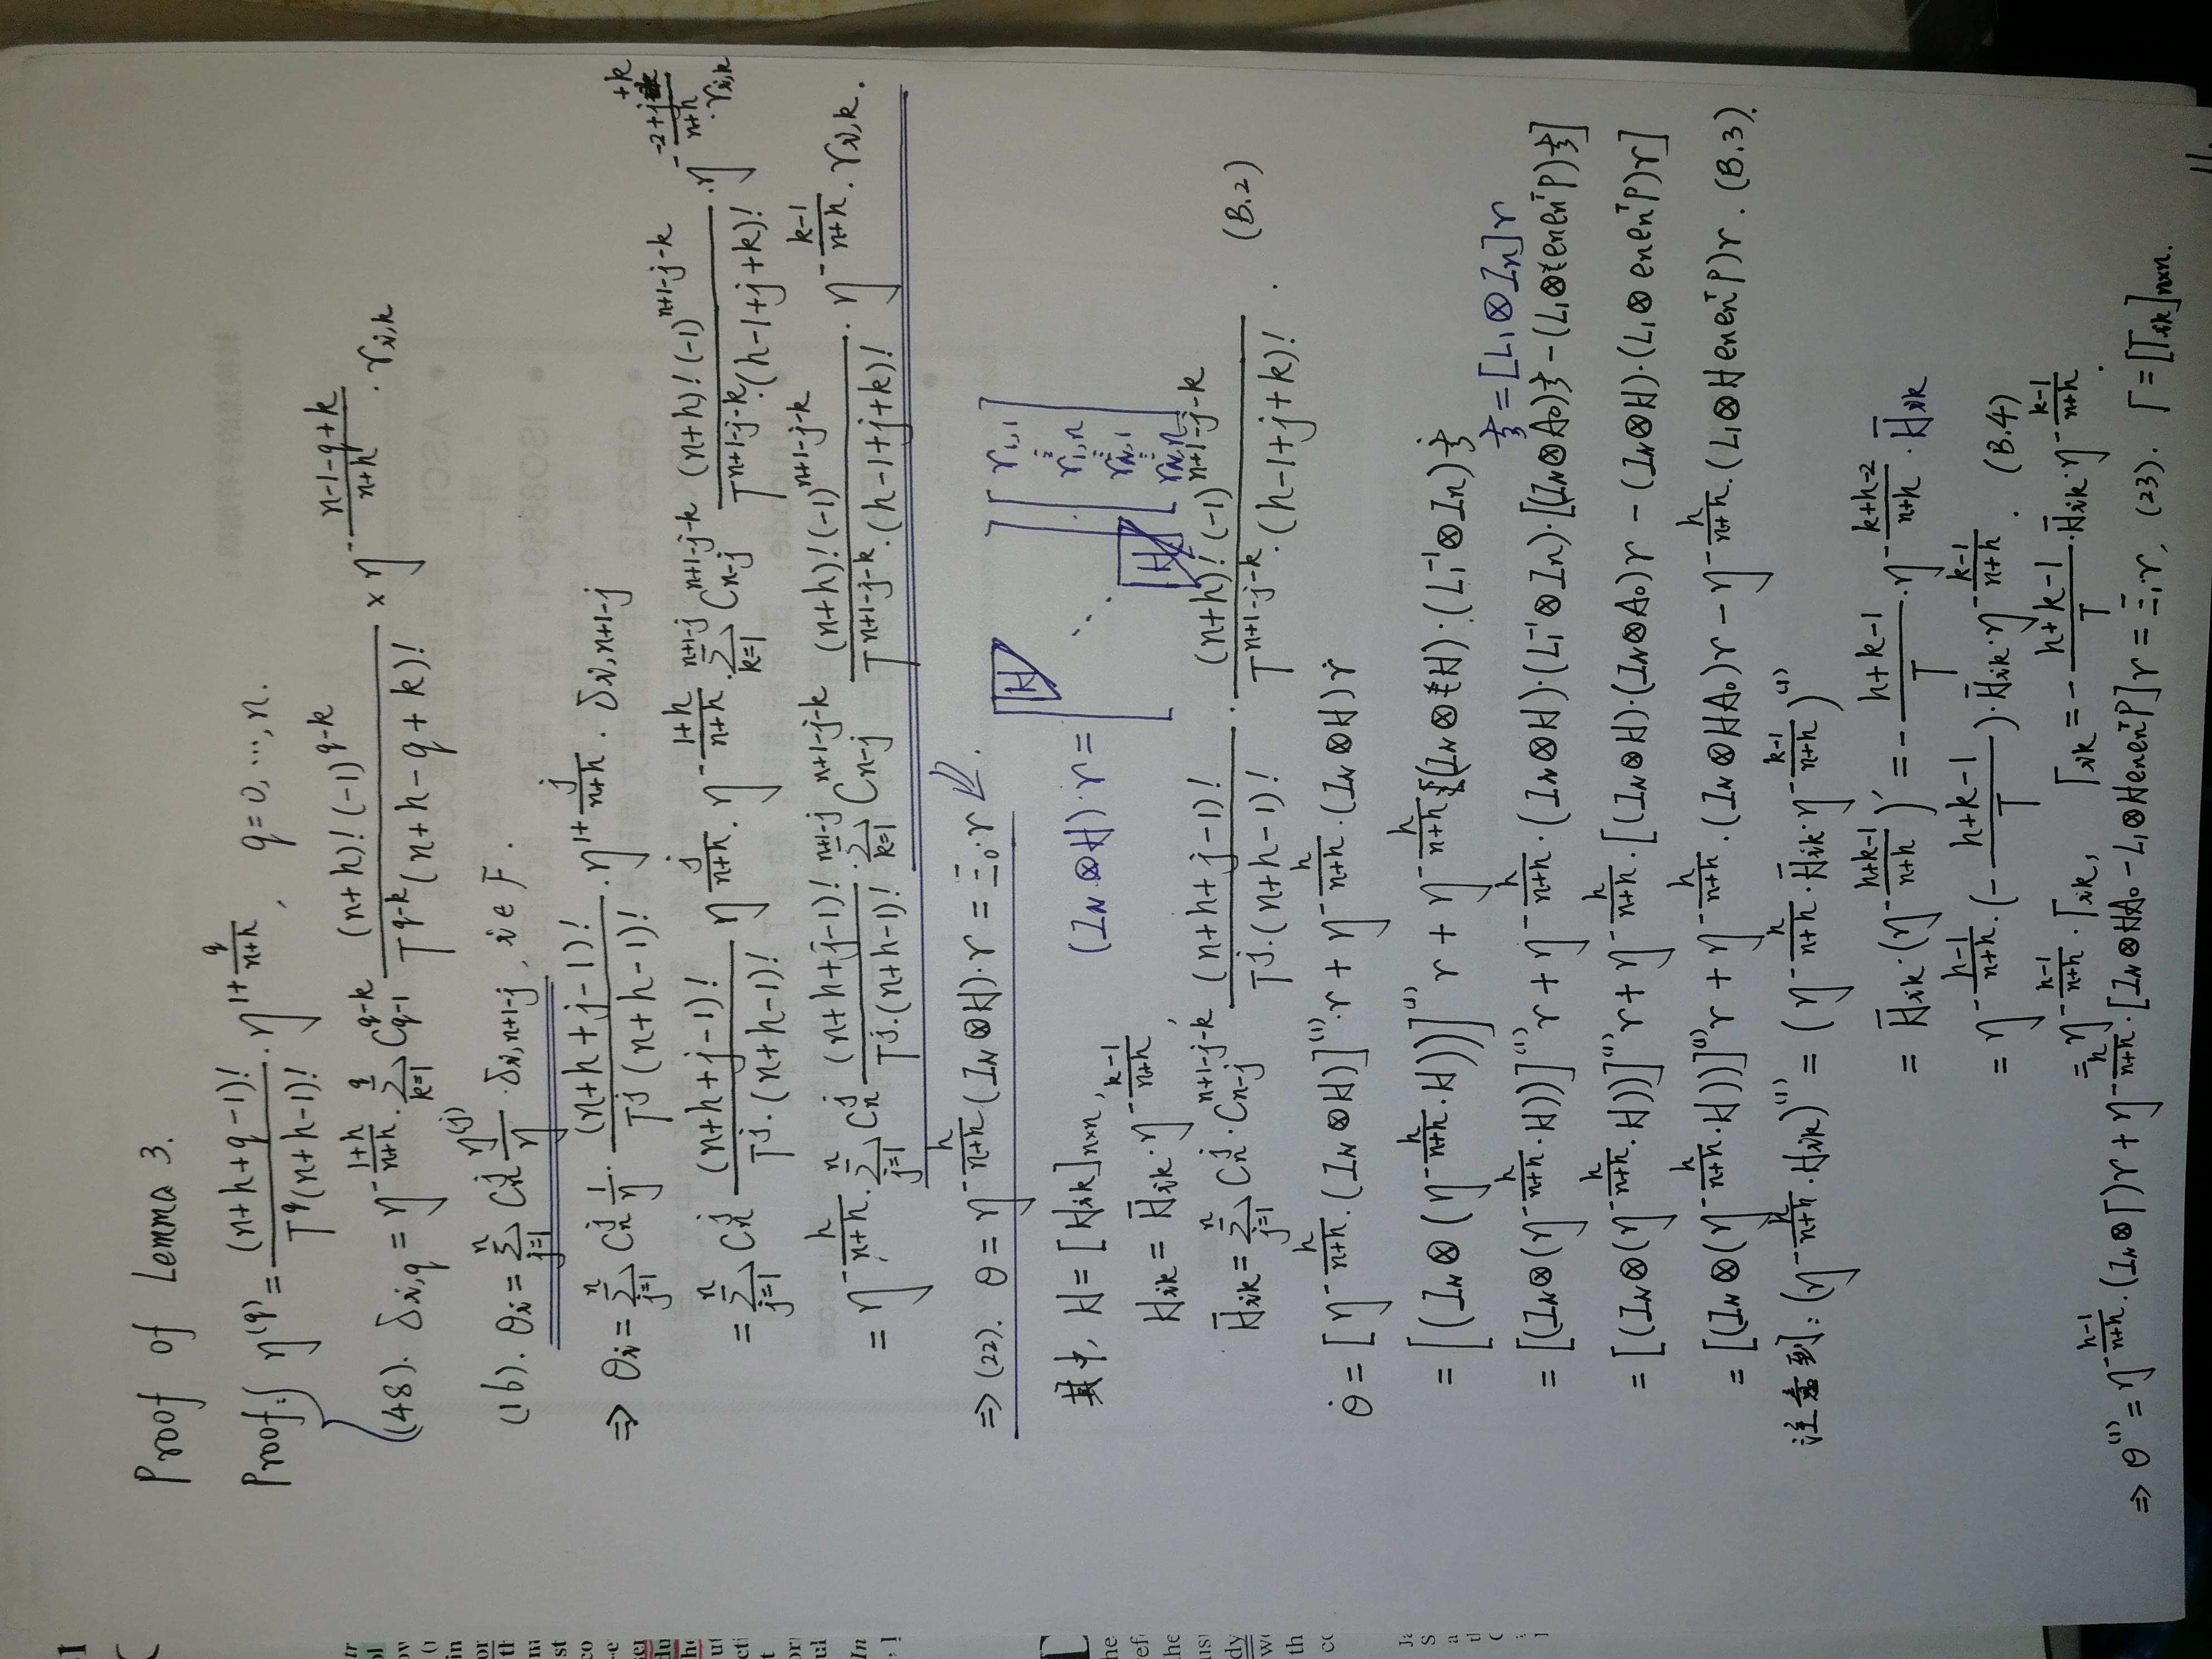 Proof of Lemma 3.
Proof: { η^{(q)} = \frac{(n+h+q-1)!}{T^q(n+h-1)!} · η^{1+\frac{q}{n+h}}, q=0, ⋯, n.
(48). δ_{i,q} = η^{-\frac{1+h}{n+h}} · Σ_{k=1}^{q} C_{q-1}^{q-k} \frac{(n+h)! (-1)^{q-k}}{T^{q-k}(n+h-q+k)!} × η^{-\frac{n-1-q+k}{n+h}} · r_{i,k}
(16). θ_i = Σ_{j=1}^{n} C_n^j \frac{η^{(j)}}{η} · δ_{i,n+1-j}, i ∈ F.
⇒ θ_i = Σ_{j=1}^{n} C_n^j \frac{1}{η} · \frac{(n+h+j-1)!}{T^j (n+h-1)!} · η^{1+\frac{j}{n+h}} · δ_{i,n+1-j}
= Σ_{j=1}^{n} C_n^j \frac{(n+h+j-1)!}{T^j · (n+h-1)!} η^{\frac{j}{n+h}} · η^{-\frac{1+h}{n+h}} · Σ_{k=1}^{n+1-j} C_{n-j}^{n+1-j-k} \frac{(n+h)! (-1)^{n+1-j-k}}{T^{n+1-j-k} · (h-1+j+k)!} · η^{-\frac{-2+j+k}{n+h}} · r_{i,k}
= η^{-\frac{h}{n+h}} · Σ_{j=1}^{n} C_n^j \frac{(n+h+j-1)!}{T^j · (n+h-1)!} · Σ_{k=1}^{n+1-j} C_{n-j}^{n+1-j-k} \frac{(n+h)! (-1)^{n+1-j-k}}{T^{n+1-j-k} · (h-1+j+k)!} · η^{-\frac{k-1}{n+h}} · r_{i,k}.
⇒ (22). θ = η^{-\frac{h}{n+h}} (I_N ⊗ H) · r = Ξ_0 · r .
其中, H = [H_{ik}]_{n×n}, (I_N ⊗ H) · r = [H ⋱ H] · [r_{1,1} ⋮ r_{1,n} ⋮ r_{N,1} ⋮ r_{N,n}]
H_{ik} = \bar{H}_{ik} · η^{-\frac{k-1}{n+h}},
\bar{H}_{ik} = Σ_{j=1}^{n} C_n^j · C_{n-j}^{n+1-j-k} \frac{(n+h+j-1)!}{T^j · (n+h-1)!} · \frac{(n+h)! (-1)^{n+1-j-k}}{T^{n+1-j-k} · (h-1+j+k)!} . (B.2)
\dot{θ} = [η^{-\frac{h}{n+h}} · (I_N ⊗ H)]^{(1)} · r + η^{-\frac{h}{n+h}} · (I_N ⊗ H) \dot{r}
= [(I_N ⊗ (η^{-\frac{h}{n+h}} · H))]^{(1)} r + η^{-\frac{h}{n+h}} (I_N ⊗ H) · (L_1^{-1} ⊗ I_n) \dot{ξ}
ξ = [L_1 ⊗ I_n] r
= [(I_N ⊗ (η^{-\frac{h}{n+h}} · H))]^{(1)} r + η^{-\frac{h}{n+h}} · (I_N ⊗ H) · (L_1^{-1} ⊗ I_n) · [(I_N ⊗ A_0) ξ - (L_1 ⊗ e_n e_n^T P) ξ]
= [(I_N ⊗ (η^{-\frac{h}{n+h}} · H))]^{(1)} r + η^{-\frac{h}{n+h}} · [(I_N ⊗ H) · (I_N ⊗ A_0) r - (I_N ⊗ H) · (L_1 ⊗ e_n e_n^T P) r]
= [(I_N ⊗ (η^{-\frac{h}{n+h}} · H))]^{(1)} r + η^{-\frac{h}{n+h}} · (I_N ⊗ HA_0) r - η^{-\frac{h}{n+h}} · (L_1 ⊗ H e_n e_n^T P) r . (B.3).
注意到: (η^{-\frac{h}{n+h}} · H_{ik})^{(1)} = (η^{-\frac{h}{n+h}} · \bar{H}_{ik} · η^{-\frac{k-1}{n+h}})^{(1)}
= \bar{H}_{ik} · (η^{-\frac{h+k-1}{n+h}})' = -\frac{h+k-1}{T} · η^{-\frac{k+h-2}{n+h}} · \bar{H}_{ik}
= η^{-\frac{h-1}{n+h}} · (-\frac{h+k-1}{T}) · \bar{H}_{ik} · η^{-\frac{k-1}{n+h}} . (B.4)
= η^{-\frac{h-1}{n+h}} · Γ_{ik}, Γ_{ik} = -\frac{h+k-1}{T} · \bar{H}_{ik} · η^{-\frac{k-1}{n+h}} .
⇒ θ^{(1)} = η^{-\frac{h-1}{n+h}} · (I_N ⊗ Γ) r + η^{-\frac{h}{n+h}} · [I_N ⊗ HA_0 - L_1 ⊗ H e_n e_n^T P] r = Ξ_1 · r, (23). Γ = [Γ_{ik}]_{n×n}.